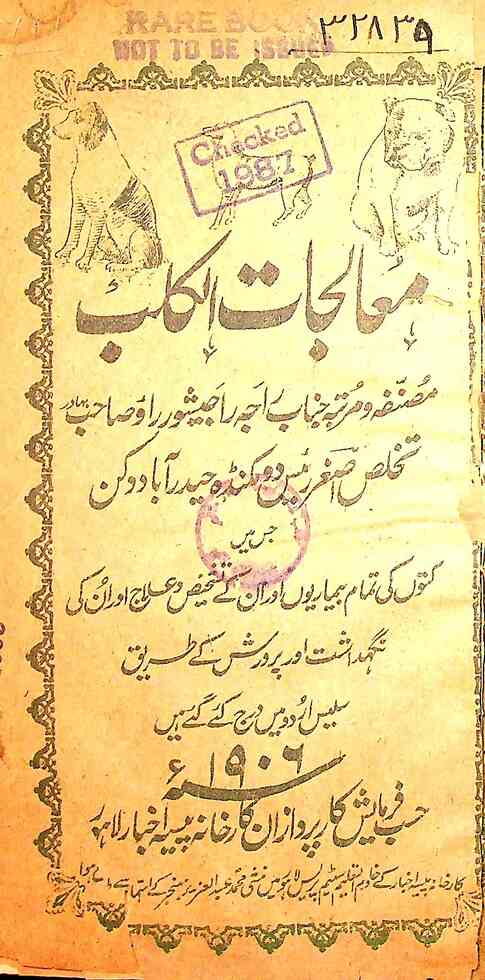 RARE BOOK
NOT TO BE ISSUED
۳۲۸۳۹
Checked
1987
معالجات الکلب
مصنفہ و مرتبہ جناب راجہ راجیشور راؤ صاحب بہادر
تخلص اصغر رئیس دومکنڈہ حیدرآباد دکن
جس میں
کتوں کی تمام بیماریوں اور ان کے تشخیص و علاج اور ان کی
نگہداشت اور پرورش کے طریق
سلیس اُردو میں درج کئے گئے ہیں
سنہ ۱۹۰۶ء
حسب فرمایش کارپردازان کارخانہ پیسہ اخبار لاہور
کارخانہ پیسہ اخبار کے خادم التعلیم سٹیم پریس لاہور میں منشی محمد عبدالعزیز منیجر کے اہتمام سے